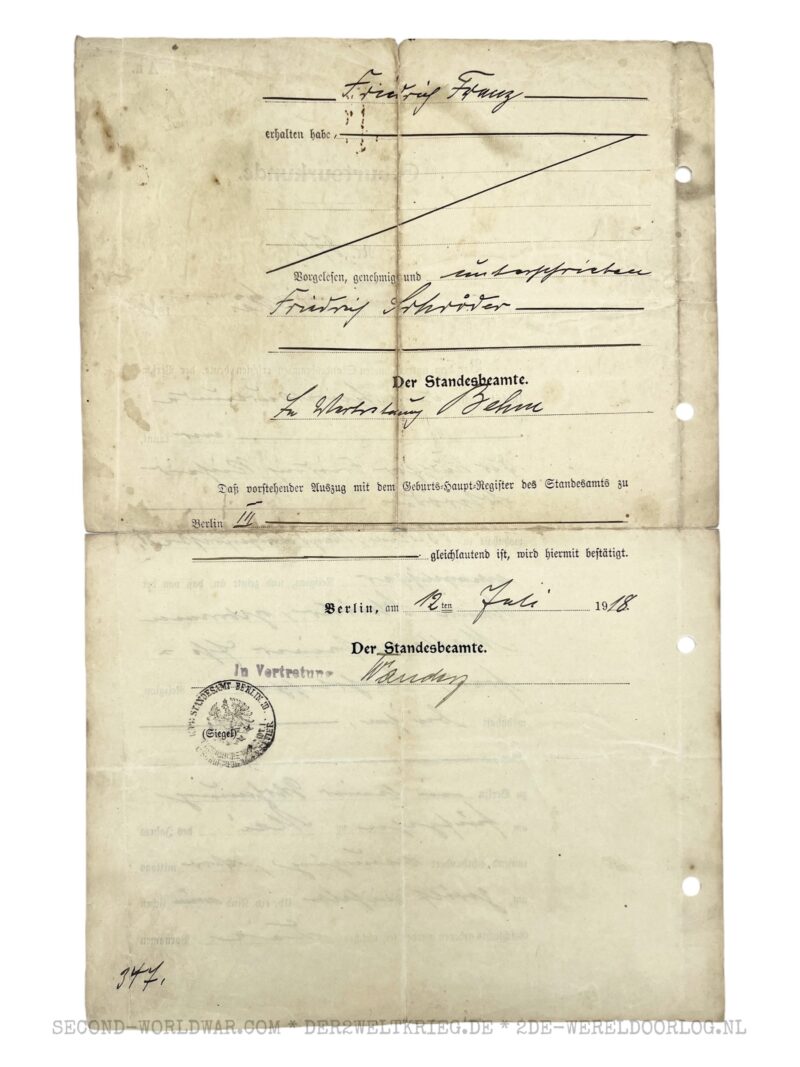 Friedrich Franz
erhalten habe
Vorgelesen, genehmigt und unterschrieben
Friedrich Schröder
Der Standesbeamte.
In Vertretung Behm
Daß vorstehender Auszug mit dem Geburts-Haupt-Register des Standesamts zu
Berlin III
gleichlautend ist, wird hiermit bestätigt.
Berlin, am 12ten Juli 1918.
Der Standesbeamte.
In Vertretung
STANDESAMT BERLIN III.
(Siegel)
947.
SECOND-WORLDWAR.COM * DER2WELTKRIEG.DE * 2DE-WERELDOORLOG.NL